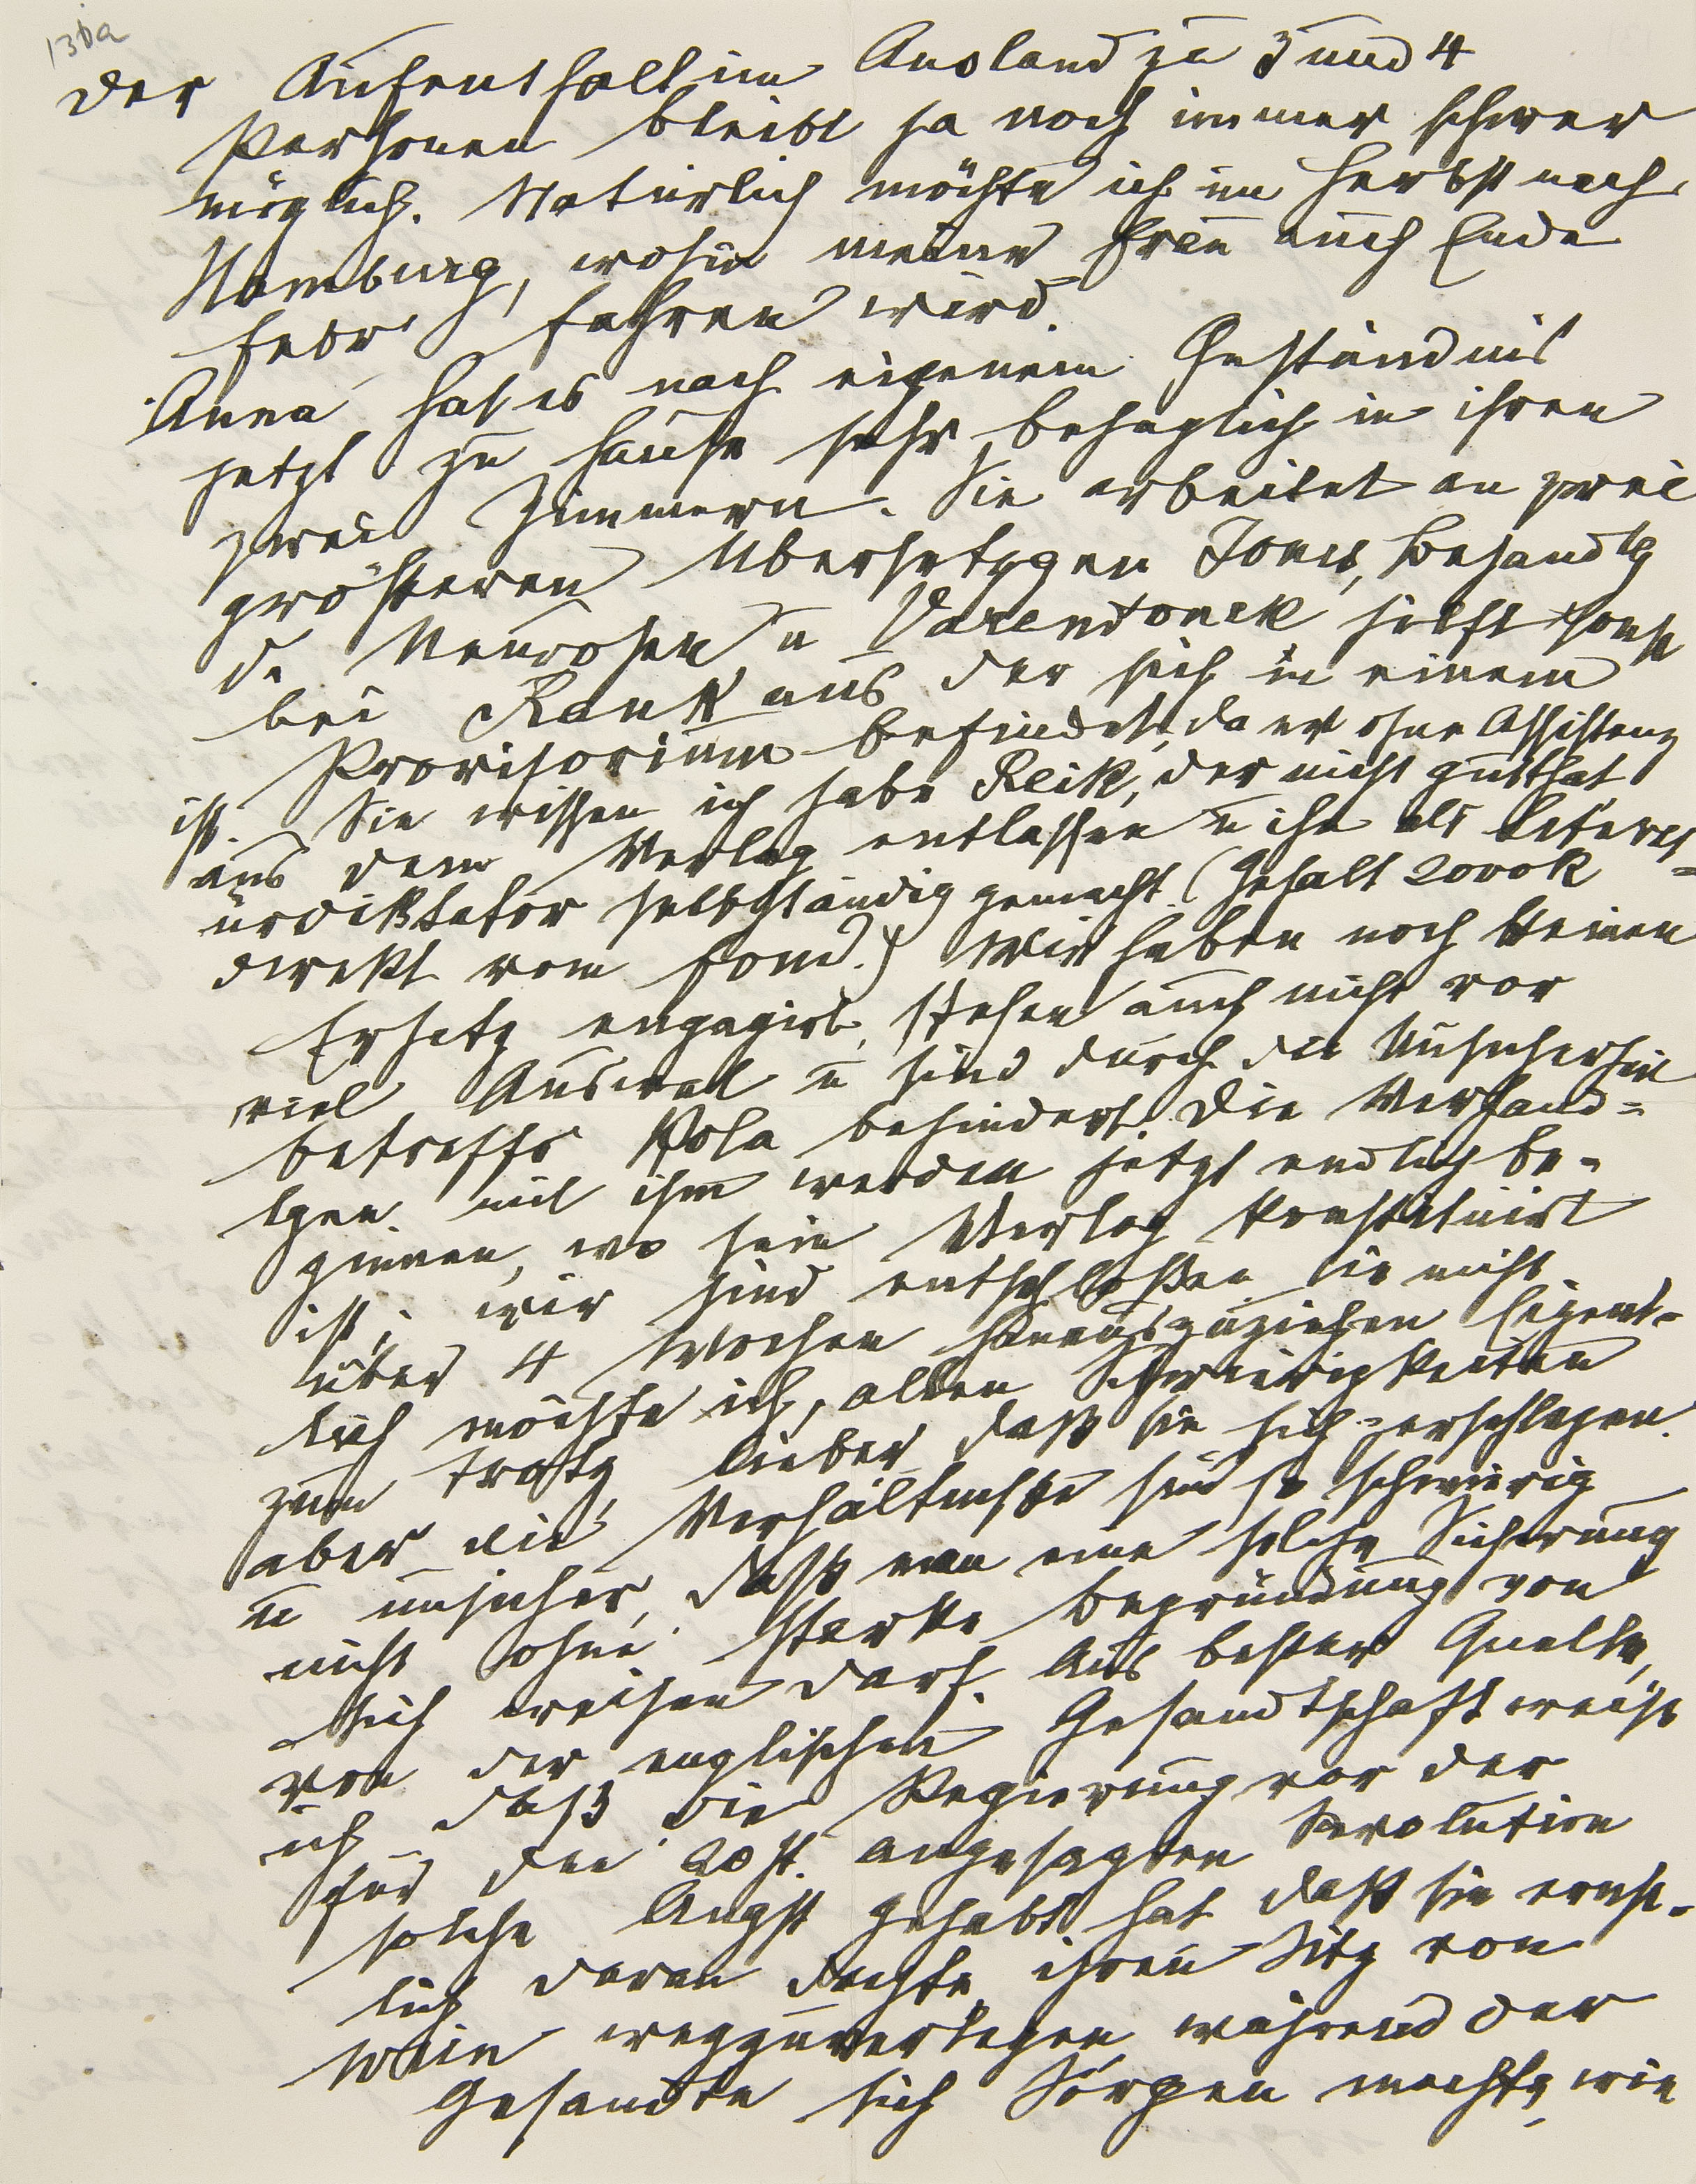 136a
der Aufenthalt im Ausland zu 3 und 4
Personen bleibt ja noch immer schwer
möglich. Natürlich möchte ich im Herbst nach
Hamburg, wohin meine Frau auch Ende
Febr fahren wird.
Anna hat es nach eigenem Geständnis
jetzt zu Hause sehr behaglich in ihren
zwei Zimmern. Sie arbeitet an zwei
größeren Übersetzgen Jones, Behandlg
d. Neurosen u Varendonck hilft sonst
bei Rank aus der sich in einem
Provisorium befindet, da er ohne Assistenz
ist. Sie wissen ich habe Reik, der nicht gut that
aus dem Verlag entlassen u ihn als Literat=
urdirektor selbständig gemacht. (Gehalt 2000K
direkt vom Fond.) Wir haben noch keinen
Ersatz engagirt, stehen auch nicht vor
viel Auswal u sind durch die Unsicherheit
betreffs Kola behindert. Die Verhand=
lgen mit ihm werden jetzt endlich be-
ginnen, wo sein Verlag konstituirt
ist; wir sind entschloßen sie nicht
über 4 Wochen hinauszuziehen Eigent-
lich möchte ich, allen Schwierigkeiten
zum Trotz, lieber daß sie sich zerschlagen.
aber die Verhältnisse sind so schwierig
u unsicher, daß man eine solche Sicherung
nicht ohne starke Begründung von
sich weisen darf. Aus bester Quelle,
von der englischen Gesandtschaft weiß
ich daß die Regierung vor der
für den 20st. angesagten Revolution
solche Angst gehabt hat daß sie ernst-
lich daran dachte ihren Sitz von
Wien wegzuverlegen, während der
Gesandte sich Sorgen machte, wie